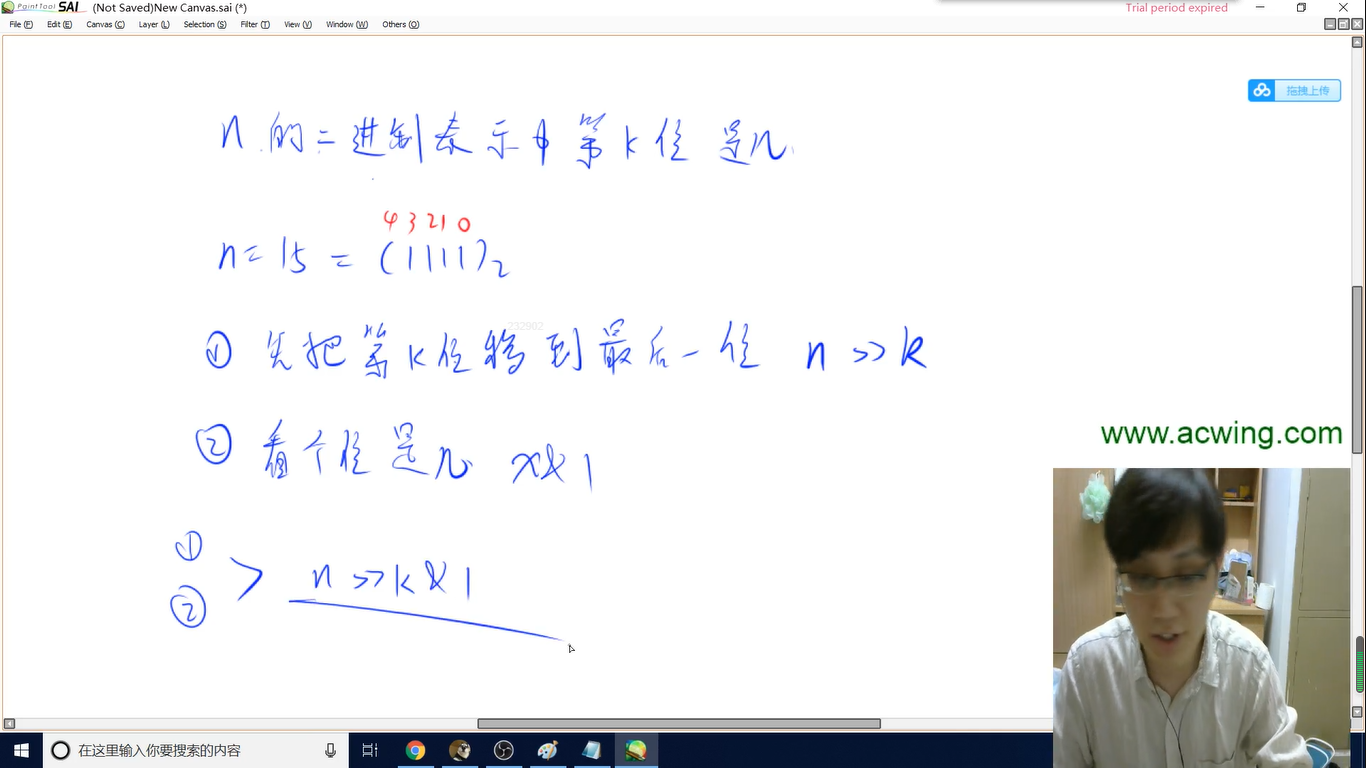 PaintTool SAI (Not Saved)New Canvas.sai (*)
Trial period expired
File (F) Edit (E) Canvas (C) Layer (L) Selection (S) Filter (T) View (V) Window (W) Others (O)
拖拽上传
n 的二进制表示中第 k 位是几
4 3 2 1 0
n = 15 = (1111)₂
232902
① 先把第 k 位移到最后一位 n >> k
② 看个位是几 x & 1
www.acwing.com
①
② > n >> k & 1
在这里输入你要搜索的内容